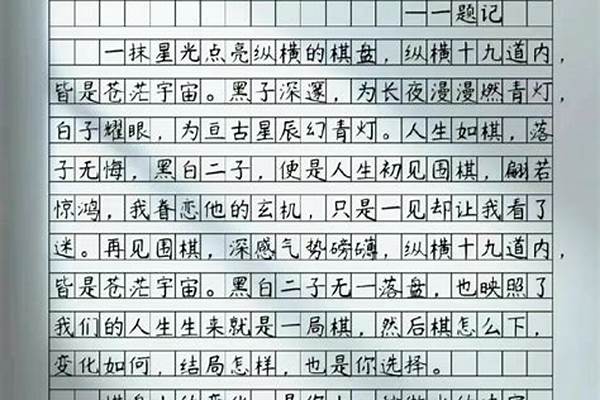 ——题记
一抹星光点亮纵横的棋盘，纵横十九道内，
皆是苍茫宇宙。黑子深邃，为长夜漫漫燃青灯，
白子耀眼，为亘古星辰幻青灯。人生如棋，落
子无悔，黑白二子，便是人生初见围棋，翩若
惊鸿，我眷恋他的玄机，只是一见却让我看了
迷。再见围棋，深感气势磅礴，纵横十九道内，
皆是苍茫宇宙。黑白二子无一落盘，也映照了
我们的人生生来就是一局棋，然后棋怎么下，
变化如何，结局怎样，也是你选择。